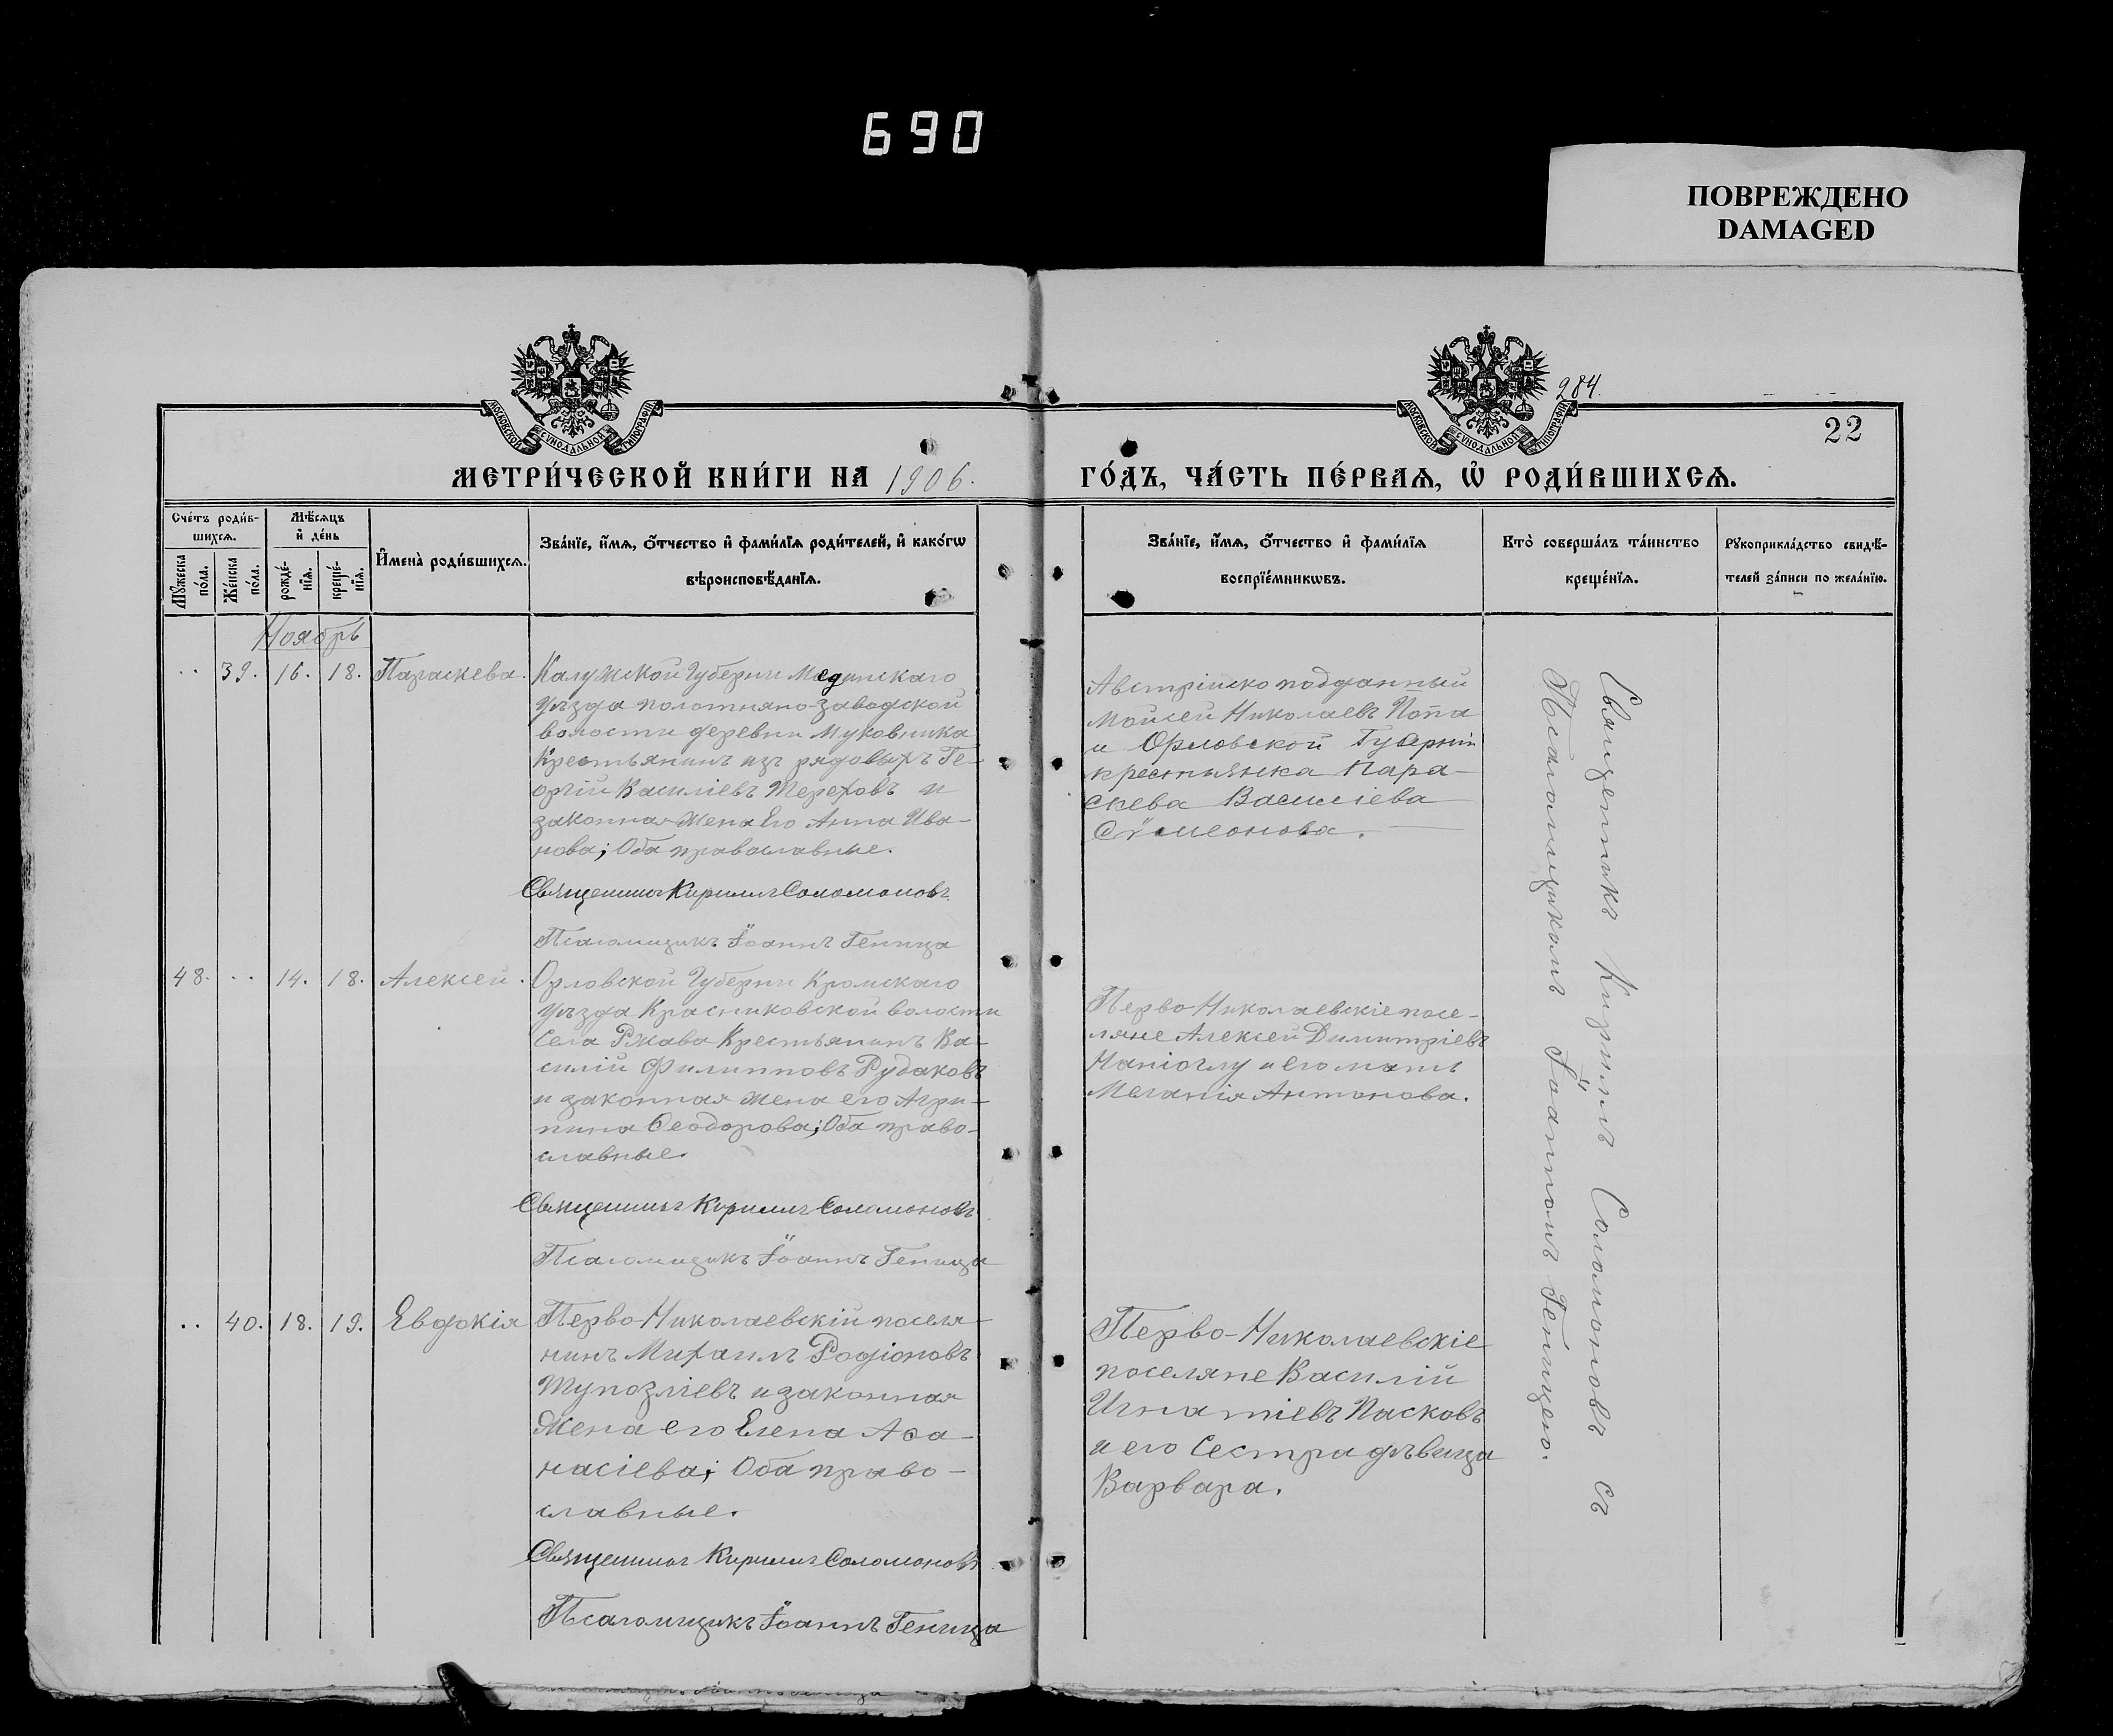 690
ПОВРЕЖДЕНО
DAMAGED
МОСКОВСКОЙ СѴНОДАЛЬНОЙ ТИПОГРАФІИ
МОСКОВСКОЙ СѴНОДАЛЬНОЙ ТИПОГРАФІИ
284.
22
МЕТРИ́ЧЕСКОЙ КНИ́ГИ НА 1906. ГО́ДЪ, ЧА́СТЬ ПЕ́РВАѦ, Ѡ҆ РОДИ́ВШИХСѦ.
Сче́тъ роди́в-
шихсѧ.
Мꙋ́жеска
по́ла.
Же́нска
по́ла.
Мѣ́сѧцъ
и҆ де́нь
рожде́-
нїѧ.
креще́-
нїѧ.
И҆мена̀ роди́вшихсѧ.
Зва́нїе, и҆́мѧ, ѻ҆́тчество и҆ фами́лїѧ роди́телей, и҆ како́гѡ
вѣроисповѣ́данїѧ.
Зва́нїе, и҆́мѧ, ѻ҆́тчество и҆ фами́лїѧ
воспрїе́мникѡвъ.
Кто̀ соверша́лъ та́инство
креще́нїѧ.
Рꙋкоприкла́дство свидѣ́-
телей за́писи по жела́нїю.
Ноябрь
.. 39. 16. 18. Параскева.
Калужской Губерніи Медынскаго
уѣзда полотняно-заводской
волости деревни Муковнина
Крестьянинъ изъ рядовыхъ Ге-
оргій Василіевъ Тереховъ и
законная жена Его Анна Ива-
нова; Оба православные.
Священникъ Кириллъ Соломоновъ
Псаломщикъ Іоаннъ Геница
Австрійско подданный
Моисей Николаевъ Попа
и Орловской Губерніи
крестьянка Пара-
скева Василіева
Сѵмеонова.
48. .. 14. 18. Алексей.
Орловской Губерніи Кромскаго
уѣзда Красниковской волости
Села Ржава Крестьянинъ Ва-
силій Филипповъ Рудаковъ
и законная жена его Агри-
пина Ѳеодорова; Оба право-
славные.
Священникъ Кириллъ Соломоновъ
Псаломщикъ Іоаннъ Геница
Перво-Николаевскіе посе-
ляне Алексей Димитріевъ
и его мать
Меланія Антонова.
.. 40. 18. 19. Евдокія
Перво-Николаевскій поселя-
нинъ Михаилъ Родіоновъ
Тупозліевъ и законная
жена его Елена Аѳа-
насіева; Оба право-
славные.
Священникъ Кириллъ Соломоновъ
Псаломщикъ Іоаннъ Геница
Перво-Николаевскіе
поселяне Василій
Игнатіевъ Пасковъ
и его Сестра дѣвица
Варвара.
Священникъ Кириллъ Соломоновъ съ
Псаломщикомъ Іоанномъ Геницею.